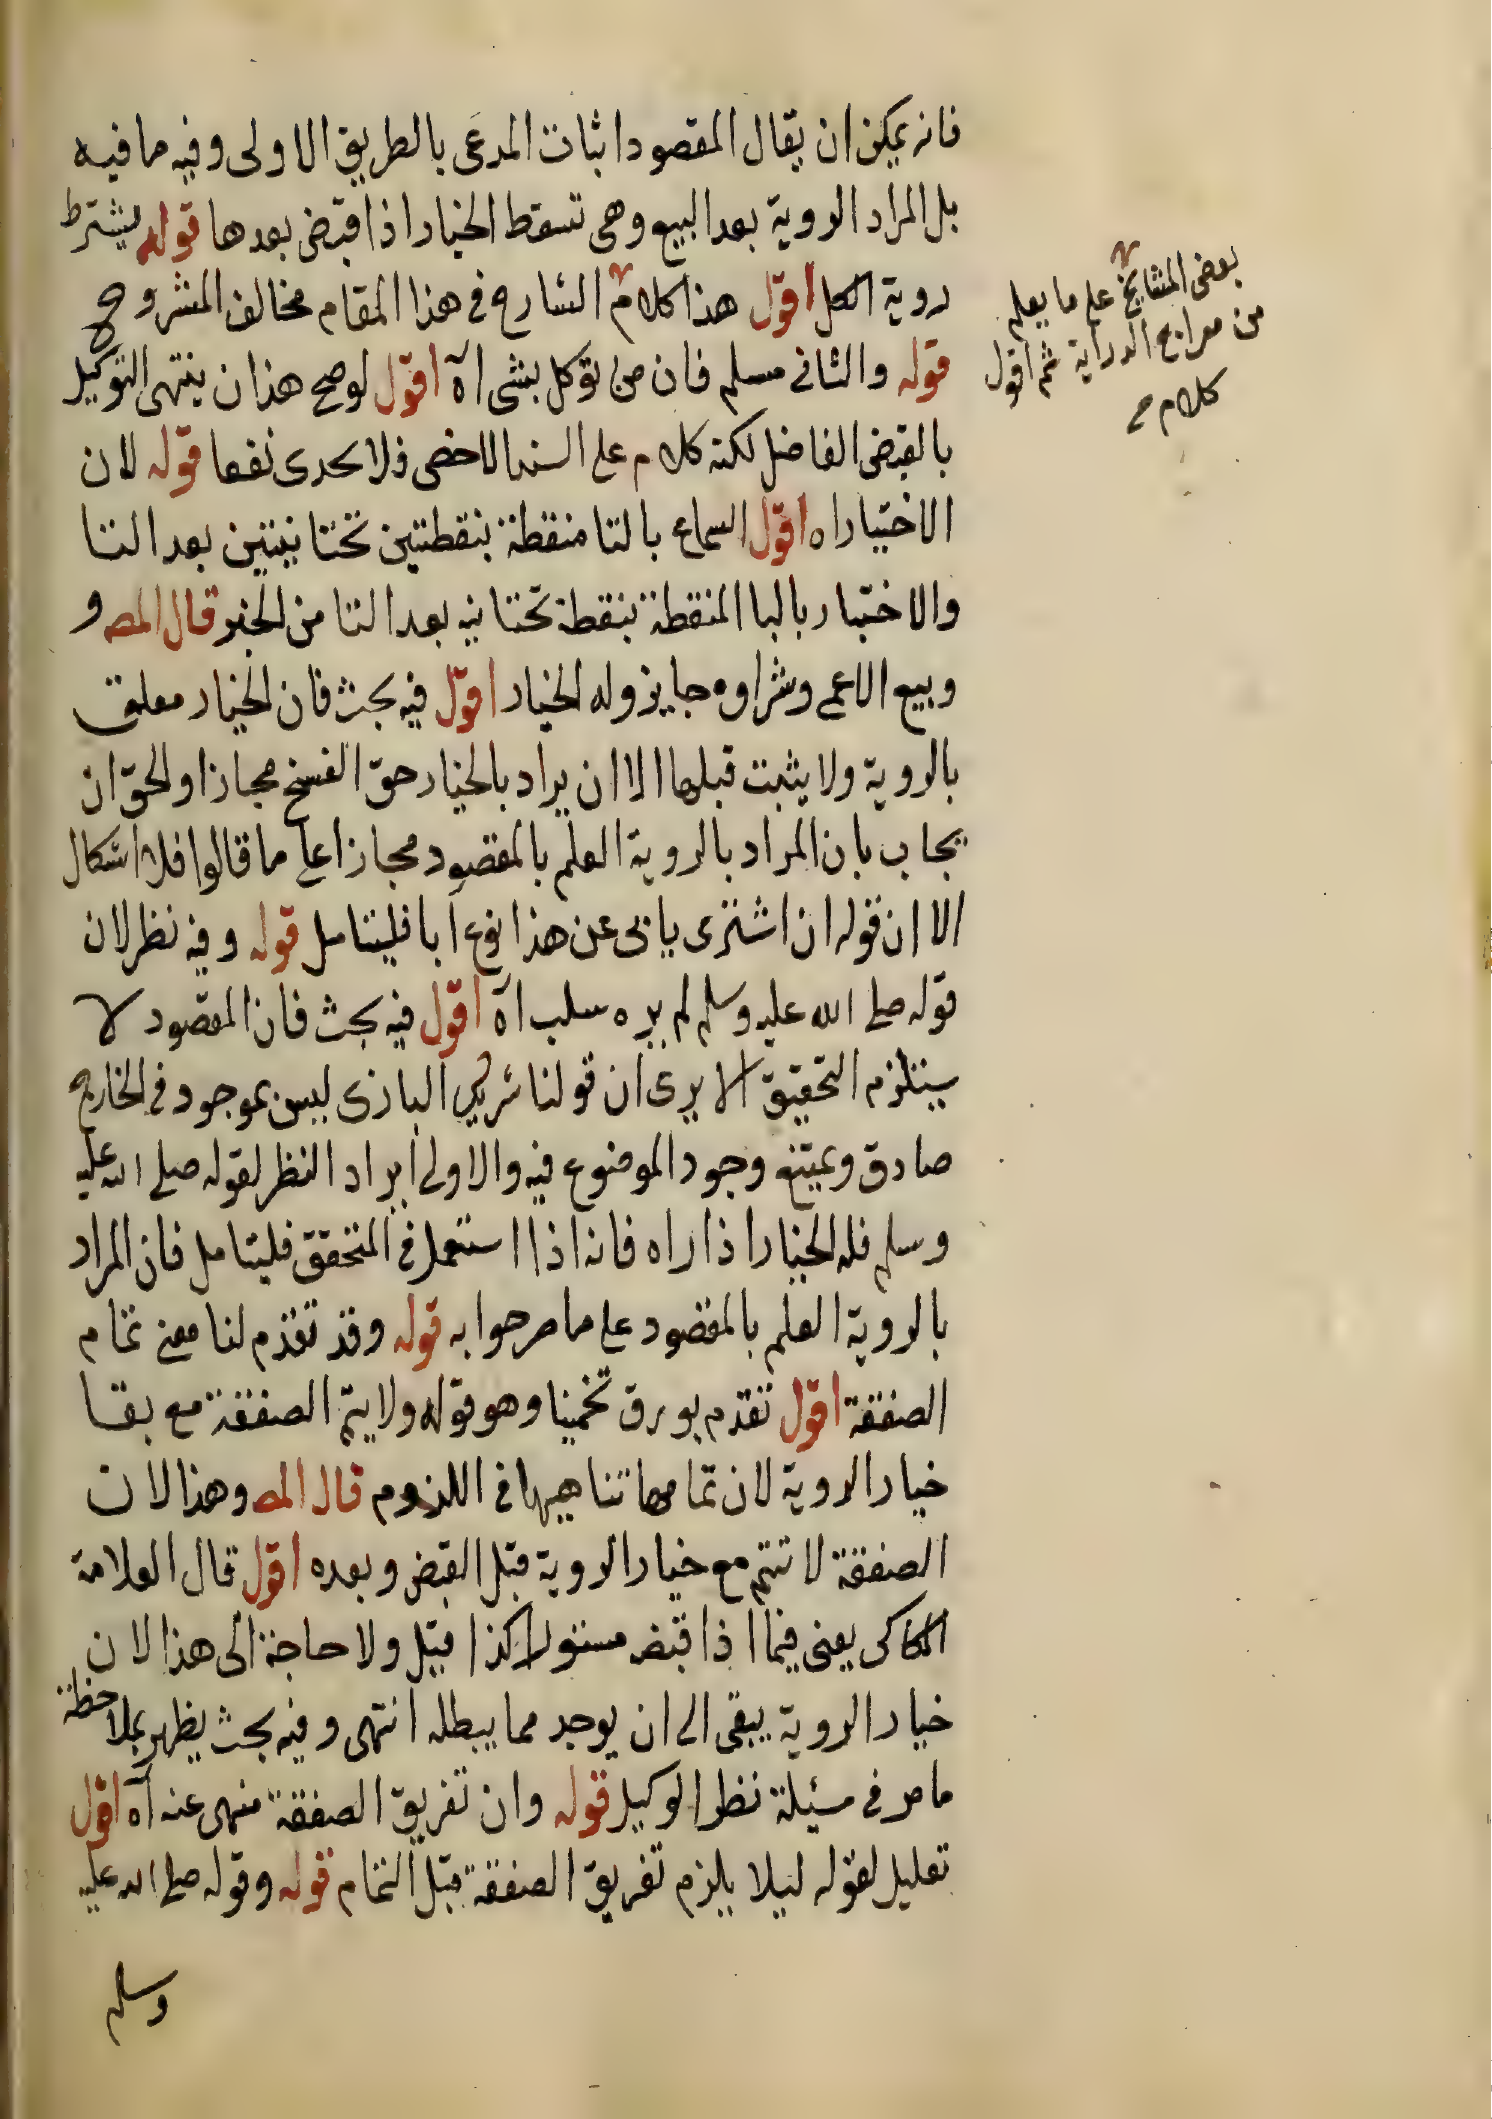 فانه يمكن ان يقال المقصود اثبات المدعى بالطريق الاولى وفيه ما فيه
بل المراد الروية بعد البيع وهى تسقط الخيار اذا قبض بعدها قوله يشترط
روية الكل اقول هذا كلام الشارح فى هذا المقام مخالف المشروح
قوله والثانى مسلم فان من توكل بشى آه اقول لو صح هذا ان ينتهى التوكيل
بالقبض الفاضل لكنه كلام على السند الاخص فلا يجدى نفعا قوله لان
الاختيار اه اقول السماع بالتا منقطة بنقطتين تحتانيتين بعد التا
والاختبار بالبا المنقطة بنقطة تحتانيه بعد التا من الخبر قال المص و
وبيع الاعمى وشراوه جايز وله الخيار اقول فيه بحث فان الخيار معلق
بالروية ولا يثبت قبلها الا ان يراد بالخيار حق الفسخ مجازا والحق ان
يجاب بان المراد بالروية العلم بالمقصود مجازا على ما قالوا فلا اشكال
الا ان قوله ان اشترى يابى عن هذا نوع ابا فليتامل قوله وفيه نظر لان
قوله صلى الله عليه وسلم لم يره سلب آه اقول فيه بحث فان المقصود لا
يستلزم التحقيق الا يرى ان قولنا شريك البارى ليس بموجود فى الخارج
صادق ويمتنع وجود الموضوع فيه والاولى ايراد النظر لقوله صلى الله عليه
وسلم فله الخيار اذا راه فانه اذا استعمل فى المتحقق فليتامل فان المراد
بالروية العلم بالمقصود على ما صرحوا به قوله وقد تقدم لنا معنى تمام
الصفقة اقول تقدم بورق تخمينا وهو قوله ولا يتم الصفقة مع بقا
خيار الروية لان تمامها تناهيها فى اللزوم قال المص وهذا لان
الصفقة لا تتم مع خيار الروية قبل القبض وبعده اقول قال العلامة
الكاكى يعنى فيما اذا قبض مستورا كذا قيل ولا حاجة الى هذا لان
خيار الروية يبقى الى ان يوجد مما يبطله انتهى وفيه بحث يظهر بملاحظة
ما مر فى مسئلة نظر الوكيل قوله وان تفريق الصفقة منهى عنه آه اقول
تعليل لقوله ليلا يلزم تفريق الصفقة قبل التمام قوله وقوله صلى الله عليه
وسلم
بعض المشايخ على ما يعلم
من معراج الدراية ثم اقول
كلام